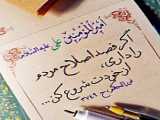 امیرالمؤمنین علی علیه السلام
اگر قصد اصلاح مردم
را داری،
از خودت شروع کن...
غررالحکم ح